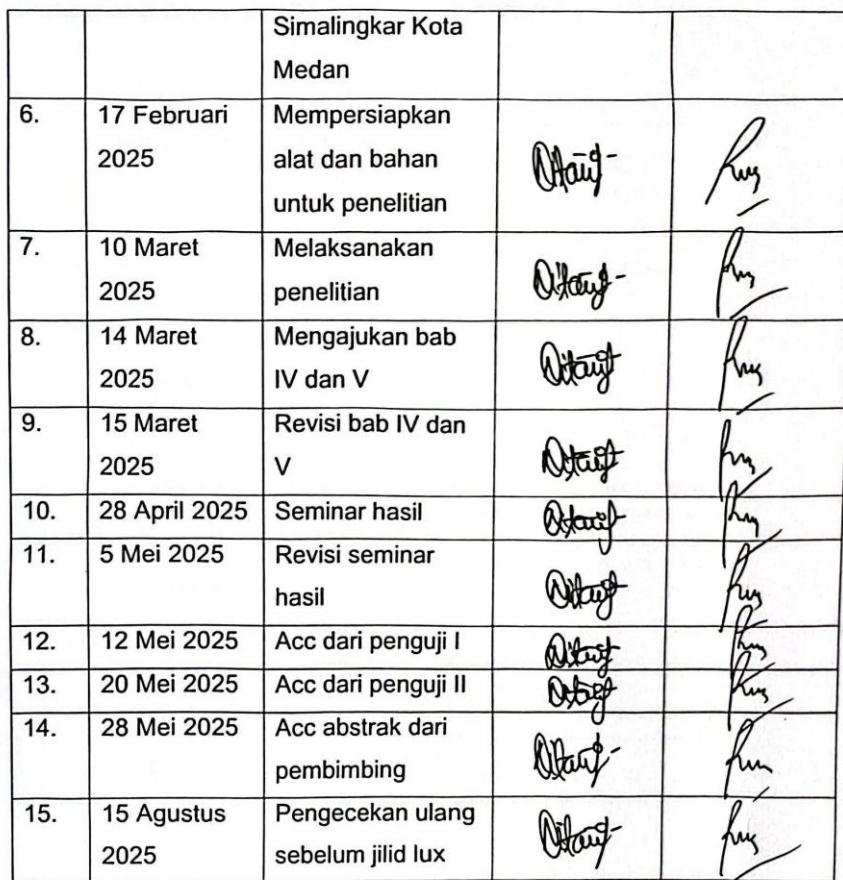 Simalingkar Kota
Medan
6. 17 Februari Mempersiapkan
2025 alat dan bahan
untuk penelitian
7. 10 Maret Melaksanakan
2025 penelitian
8. 14 Maret Mengajukan bab
2025 IV dan V
9. 15 Maret Revisi bab IV dan
2025 V
10. 28 April 2025 Seminar hasil
11. 5 Mei 2025 Revisi seminar
hasil
12. 12 Mei 2025 Acc dari penguji I
13. 20 Mei 2025 Acc dari penguji II
14. 28 Mei 2025 Acc abstrak dari
pembimbing
15. 15 Agustus Pengecekan ulang
2025 sebelum jilid lux